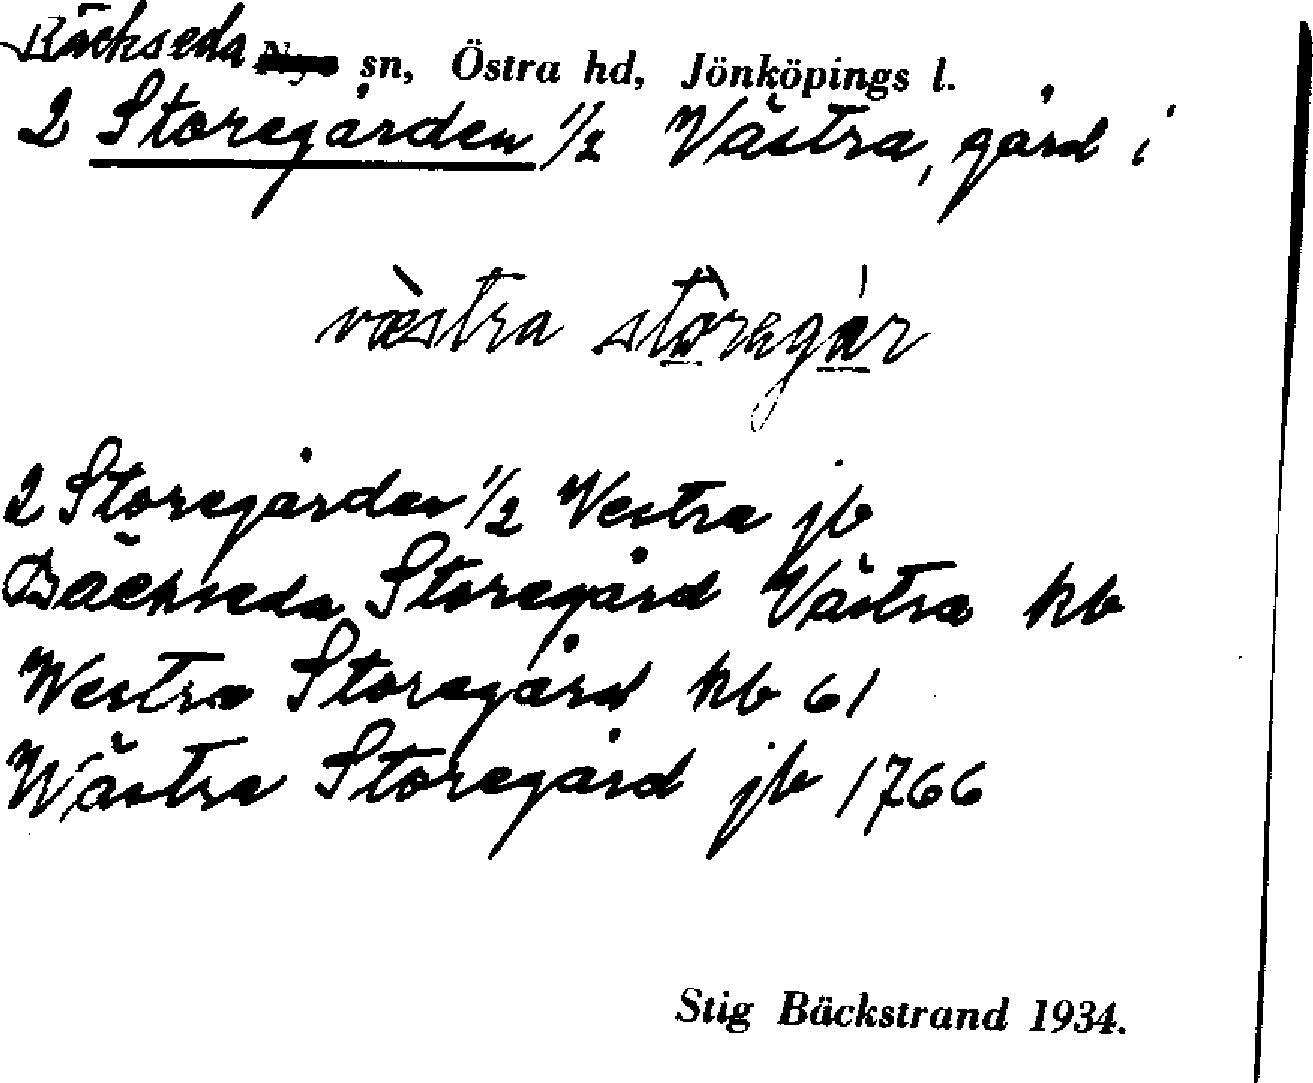 Bäckseda Nye sn, Östra hd, Jönköpings l.
2 Storegården 1/2 Västra, gård i
væ̀stra stòregár
2 Storegården 1/2 Westra jb
Bäckseda Storegård Västra hb
Westra Storegård hb 61
Wästra Storegård jb 1766
Stig Bäckstrand 1934.